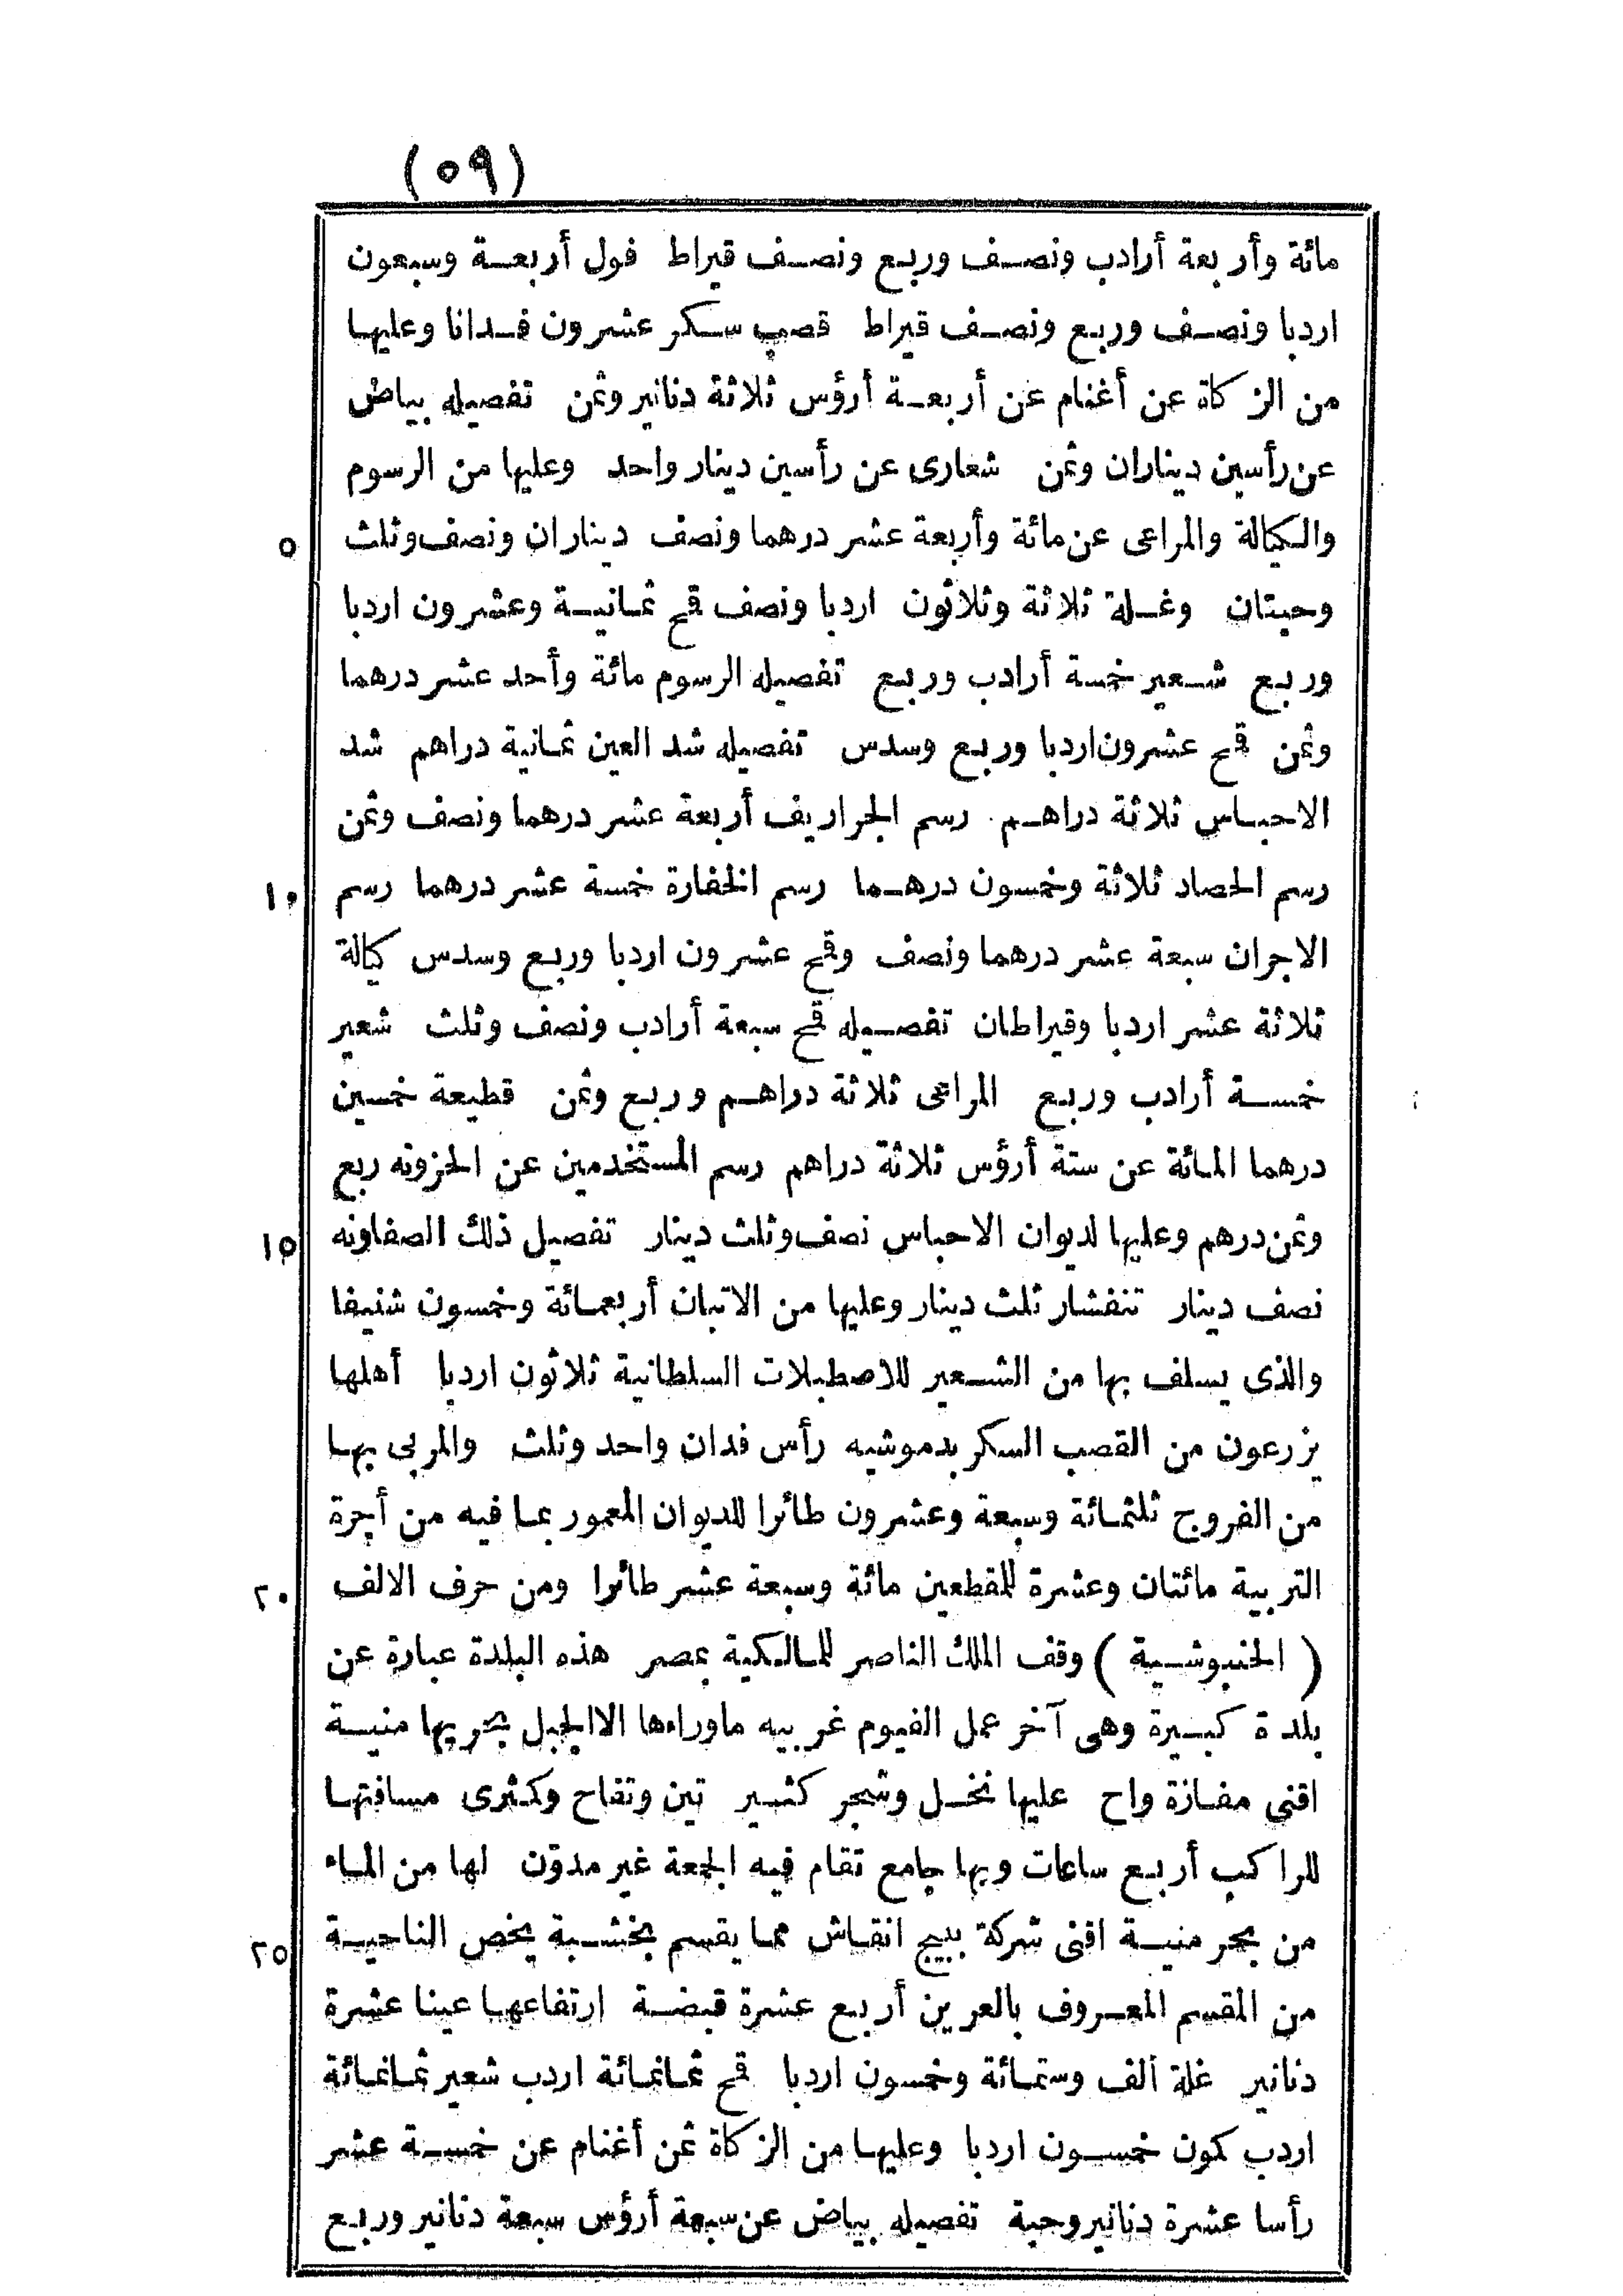 (٥٩)
مائة وأربعة أرادب ونصف وربع ونصف قيراط فول أربعة وسبعون
اردبا ونصف وربع ونصف قيراط قصب سكر عشرون فدانا وعليها
من الزكاة عن أغنام عن أربعة أرؤس ثلاثة دنانير وثمن تفصيله بياض
عن رأسين ديناران وثمن شعارى عن رأسين دينار واحد وعليها من الرسوم
والكيالة والمراعى عن مائة وأربعة عشر درهما ونصف ديناران ونصف وثلث ٥
وحبتان وغلة ثلاثة وثلاثون اردبا ونصف قمح ثمانية وعشرون اردبا
وربع شعير خمسة أرادب وربع تفصيله الرسوم مائة وأحد عشر درهما
وثمن قمح عشرون اردبا وربع وسدس تفصيله شد العين ثمانية دراهم شد
الاحباس ثلاثة دراهم رسم الجراريف أربعة عشر درهما ونصف وثمن
رسم الحصاد ثلاثة وخمسون درهما رسم الخفارة خمسة عشر درهما رسم ١٠
الاجران سبعة عشر درهما ونصف وقمح عشرون اردبا وربع وسدس كيالة
ثلاثة عشر اردبا وقيراطان تفصيله قمح سبعة أرادب ونصف وثلث شعير
خمسة أرادب وربع المراعى ثلاثة دراهم وربع وثمن قطيعة خمسين
درهما المائة عن ستة أرؤس ثلاثة دراهم رسم المستخدمين عن الحزونه ربع
وثمن درهم وعليها لديوان الاحباس نصف وثلث دينار تفصيل ذلك الصفاونه ١٥
نصف دينار تنفشار ثلث دينار وعليها من الاتبان أربعمائة وخمسون شنيفا
والذى يسلف بها من الشعير للاصطبلات السلطانية ثلاثون اردبا أهلها
يزرعون من القصب السكر بدموشيه رأس فدان واحد وثلث والمربى بها
من الفروج ثلثمائة وسبعة وعشرون طائرا للديوان المعمور بما فيه من أجرة
التربية مائتان وعشرة للمقطعين مائة وسبعة عشر طائرا ومن حرف الالف ٢٠
(الخنبوشية) وقف الملك الناصر للمالكية بمصر هذه البلدة عبارة عن
بلدة كبيرة وهى آخر عمل الفيوم غربيه ماوراءها الا الجبل بحريها منية
اقنى مفازة واح عليها نخل وشجر كثير تين وتفاح وكمثرى مسافتها
للراكب أربع ساعات وبها جامع تقام فيه الجمعة غير مدوّن لها من الماء
من بحر منية اقنى شركة ببيج انقاش مما يقسم بخشبة يخص الناحية ٢٥
من المقسم المعروف بالعرين أربع عشرة قبضة ارتفاعها عينا عشرة
دنانير غلة ألف وستمائة وخمسون اردبا قمح ثمانمائة اردب شعير ثمانمائة
اردب كمون خمسون اردبا وعليها من الزكاة ثمن أغنام عن خمسة عشر
رأسا عشرة دنانير وحبة تفصيله بياض عن سبعة أرؤس سبعة دنانير وربع